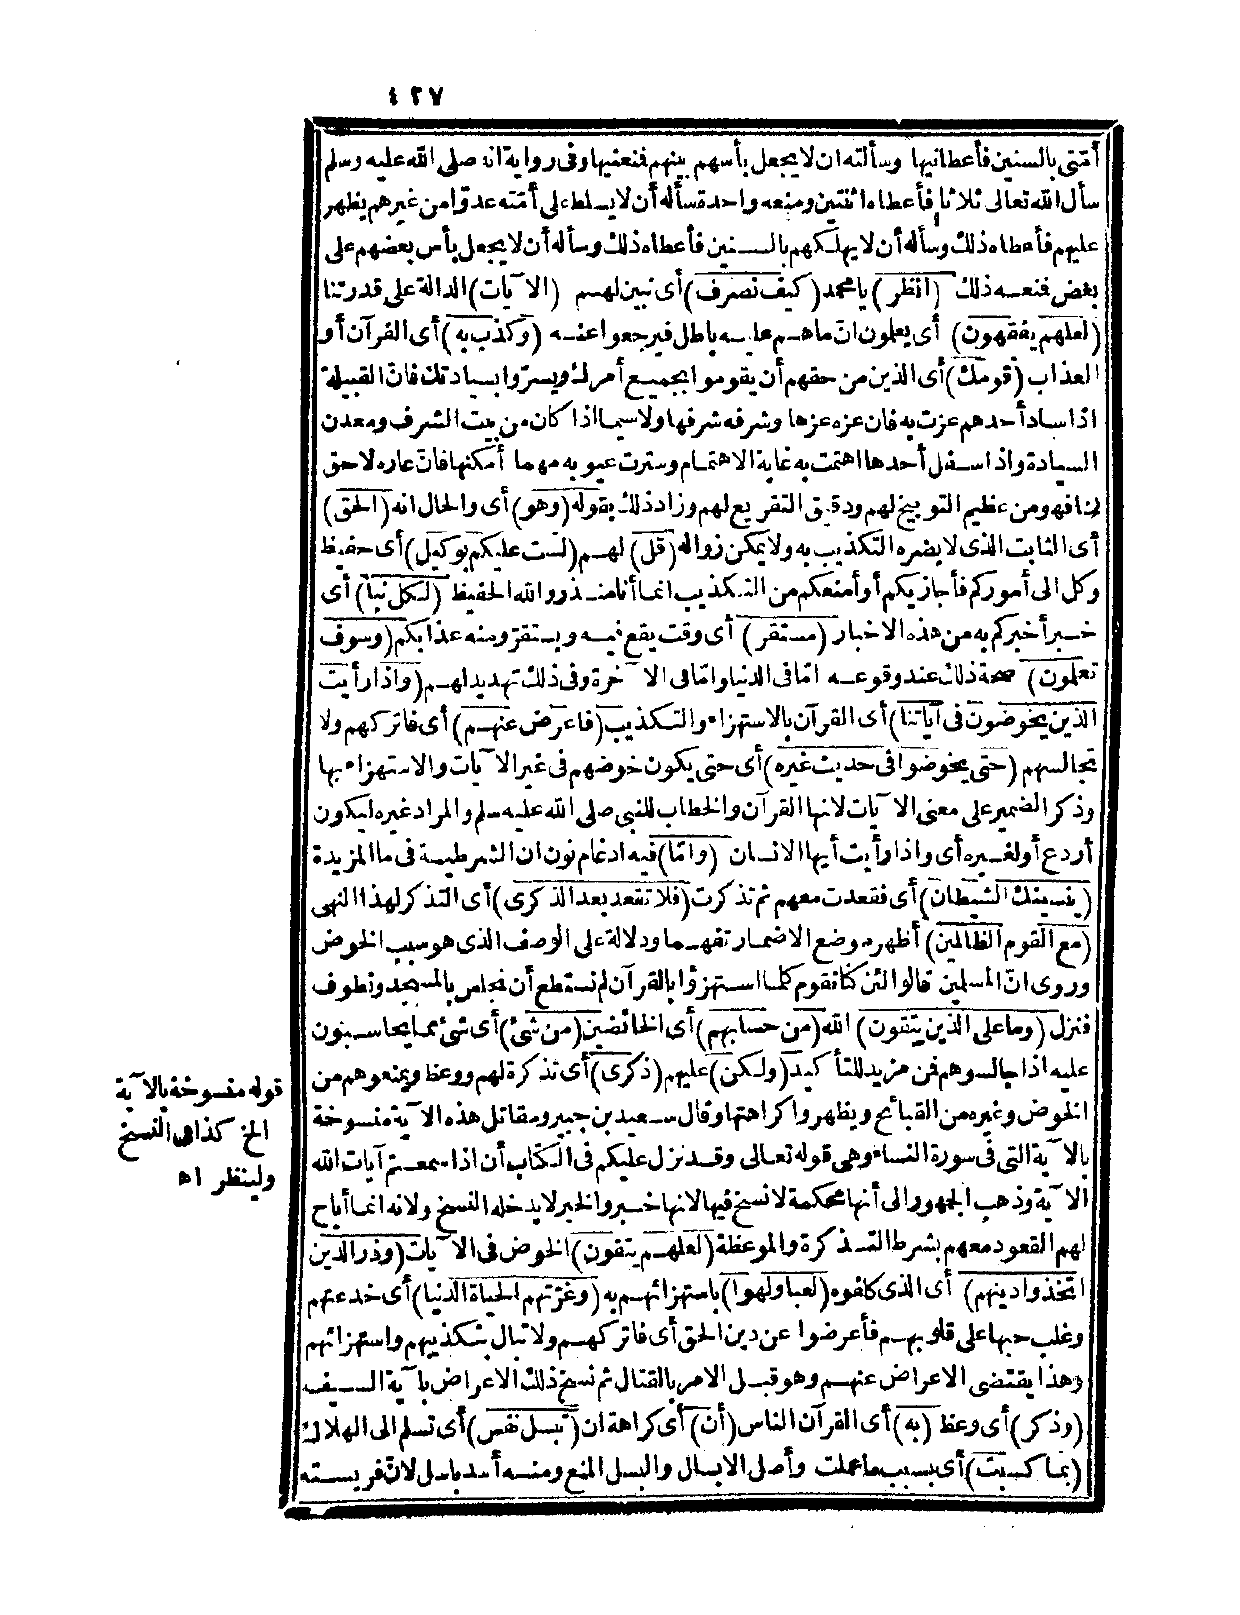 ٤٢٧
أمتى بالسنين فأعطانيها وسألته ان لا يجعل بأسهم بينهم فنعنيها وفى رواية انه صلى الله عليه وسلم
سأل الله تعالى ثلاثا فأعطاه اثنتين ومنعه واحدة سأله أن لا يسلط على أمّته عدوّا من غيرهم يظهر
عليهم فأعطاه ذلك وسأله أن لا يهلكهم بالسنين فأعطاه ذلك وسأله أن لا يجعل بأس بعضهم على
بعض فنعه ذلك (انظر) يا محمد (كيف نصرف) أى نبين لهم (الآيات) الدالة على قدرتنا
(لعلهم يفقهون) أى يعلمون انّ ما هم عليه باطل فيرجعوا عنه (وكذب به) أى القرآن أو
العذاب (قومك) أى الذين من حقهم أن يقوموا بجميع أمرك ويسرّوا بسيادتك فانّ القبيلة
اذا ساد أحدهم عزت به فان عزه عزها وشرفه شرفها ولا سيما اذا كان من بيت الشرف ومعدن
السيادة واذا سفل أحدها اهتمت به غاية الاهتمام وسترت عيوبه مهما أمكنها فانّ عاره لاحق
لها فهو من عظيم التوبيخ لهم ودقيق التقريع لهم وزاد ذلك بقوله (وهو) أى والحال انه (الحق)
أى الثابت الذى لا يضره التكذيب به ولا يمكن زواله (قل) لهم (لست عليكم بوكيل) أى حفيظ
وكل الى أموركم فأجازيكم أو أمنعكم من التكذيب انما أنا منذر والله الحفيظ (لكل نبأ) أى
خبر أخبركم به من هذه الاخبار (مستقر) أى وقت يقع فيه ويستقرّ ومنه عذابكم (وسوف
تعلمون) صحة ذلك عند وقوعه امّا فى الدنيا وامّا فى الآخرة وفى ذلك تهديد لهم (واذا رأيت
الذين يخوضون فى آياتنا) أى القرآن بالاستهزاء والتكذيب (فاعرض عنهم) أى فاتركهم ولا
تجالسهم (حتى يخوضوا فى حديث غيره) أى حتى يكون خوضهم فى غير الآيات والاستهزاء بها
وذكر الضمير على معنى الآيات لانها القرآن والخطاب للنبى صلى الله عليه وسلم والمراد غيره ليكون
أردع أو لغيره أى واذا رأيت أيها الانسان (وامّا) فيه ادغام نون ان الشرطية فى ما المزيدة
(ينسينك الشيطان) أى فقعدت معهم ثم تذكرت (فلا تقعد بعد الذكرى) أى التذكر لهذا النهى
(مع القوم الظالمين) أظهر موضع الاضمار تفهيما ودلالة على الوصف الذى هو سبب الخوض
وروى انّ المسلمين قالوا لئن كنا نقوم كلما استهزؤا بالقرآن لم نستطع أن نجلس بالمسجد ونطوف
فنزل (وما على الذين يتقون) الله (من حسابهم) أى الخائضين (من شئ) أى شئ مما يحاسبون
عليه اذا جالسوهم فن مزيد للتأكيد (ولكن) عليهم (ذكرى) أى تذكرة لهم ووعظ ويمنعوهم من
الخوض وغيره من القبائح ويظهروا كراهتها وقال سعيد بن جبير ومقاتل هذه الآية منسوخة
بالآية التى فى سورة النساء وهى قوله تعالى وقد نزل عليكم فى الكتاب أن اذا سمعتم آيات الله
الآية وذهب الجمهور الى أنها محكمة لا نسخ فيها لانها خبر والخبر لا يدخله النسخ ولانه انما أباح
لهم القعود معهم بشرط التذكرة والموعظة (لعلهم يتقون) الخوض فى الآيات (وذر الذين
اتخذوا دينهم) أى الذى كلفوه (لعبا ولهوا) باستهزائهم به (وغرّتهم الحياة الدنيا) أى خدعتهم
وغلب حبها على قلوبهم فأعرضوا عن دين الحق أى فاتركهم ولا تبال بتكذيبهم واستهزائهم
وهذا يقتضى الاعراض عنهم وهو قبل الامر بالقتال ثم نسخ ذلك الاعراض بآية السيف
(وذكر) أى وعظ (به) أى القرآن الناس (أن) أى كراهة ان (تبسل نفس) أى تسلم الى الهلاك
(بما كسبت) أى بسبب ما عملت وأصل الابسال والبسل المنع ومنه أسد باسل لانّ فريسته
قوله منسوخة بالآية
الخ كذا فى النسخ
ولينظر اه